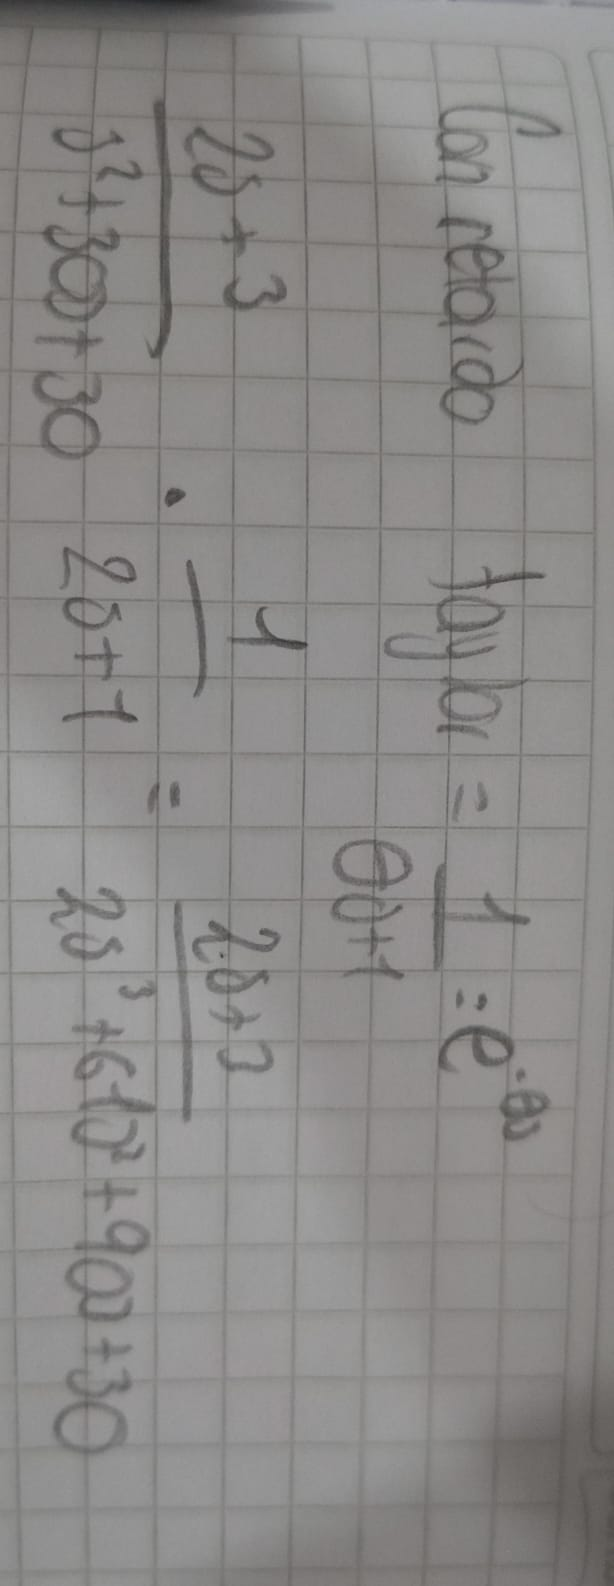 Con retardo taylor = 1/(θs+1) = e^-θs
(2s+3)/(s²+30s+30) · 1/(2s+1) = (2s+3)/(2s³+61s²+90s+30)